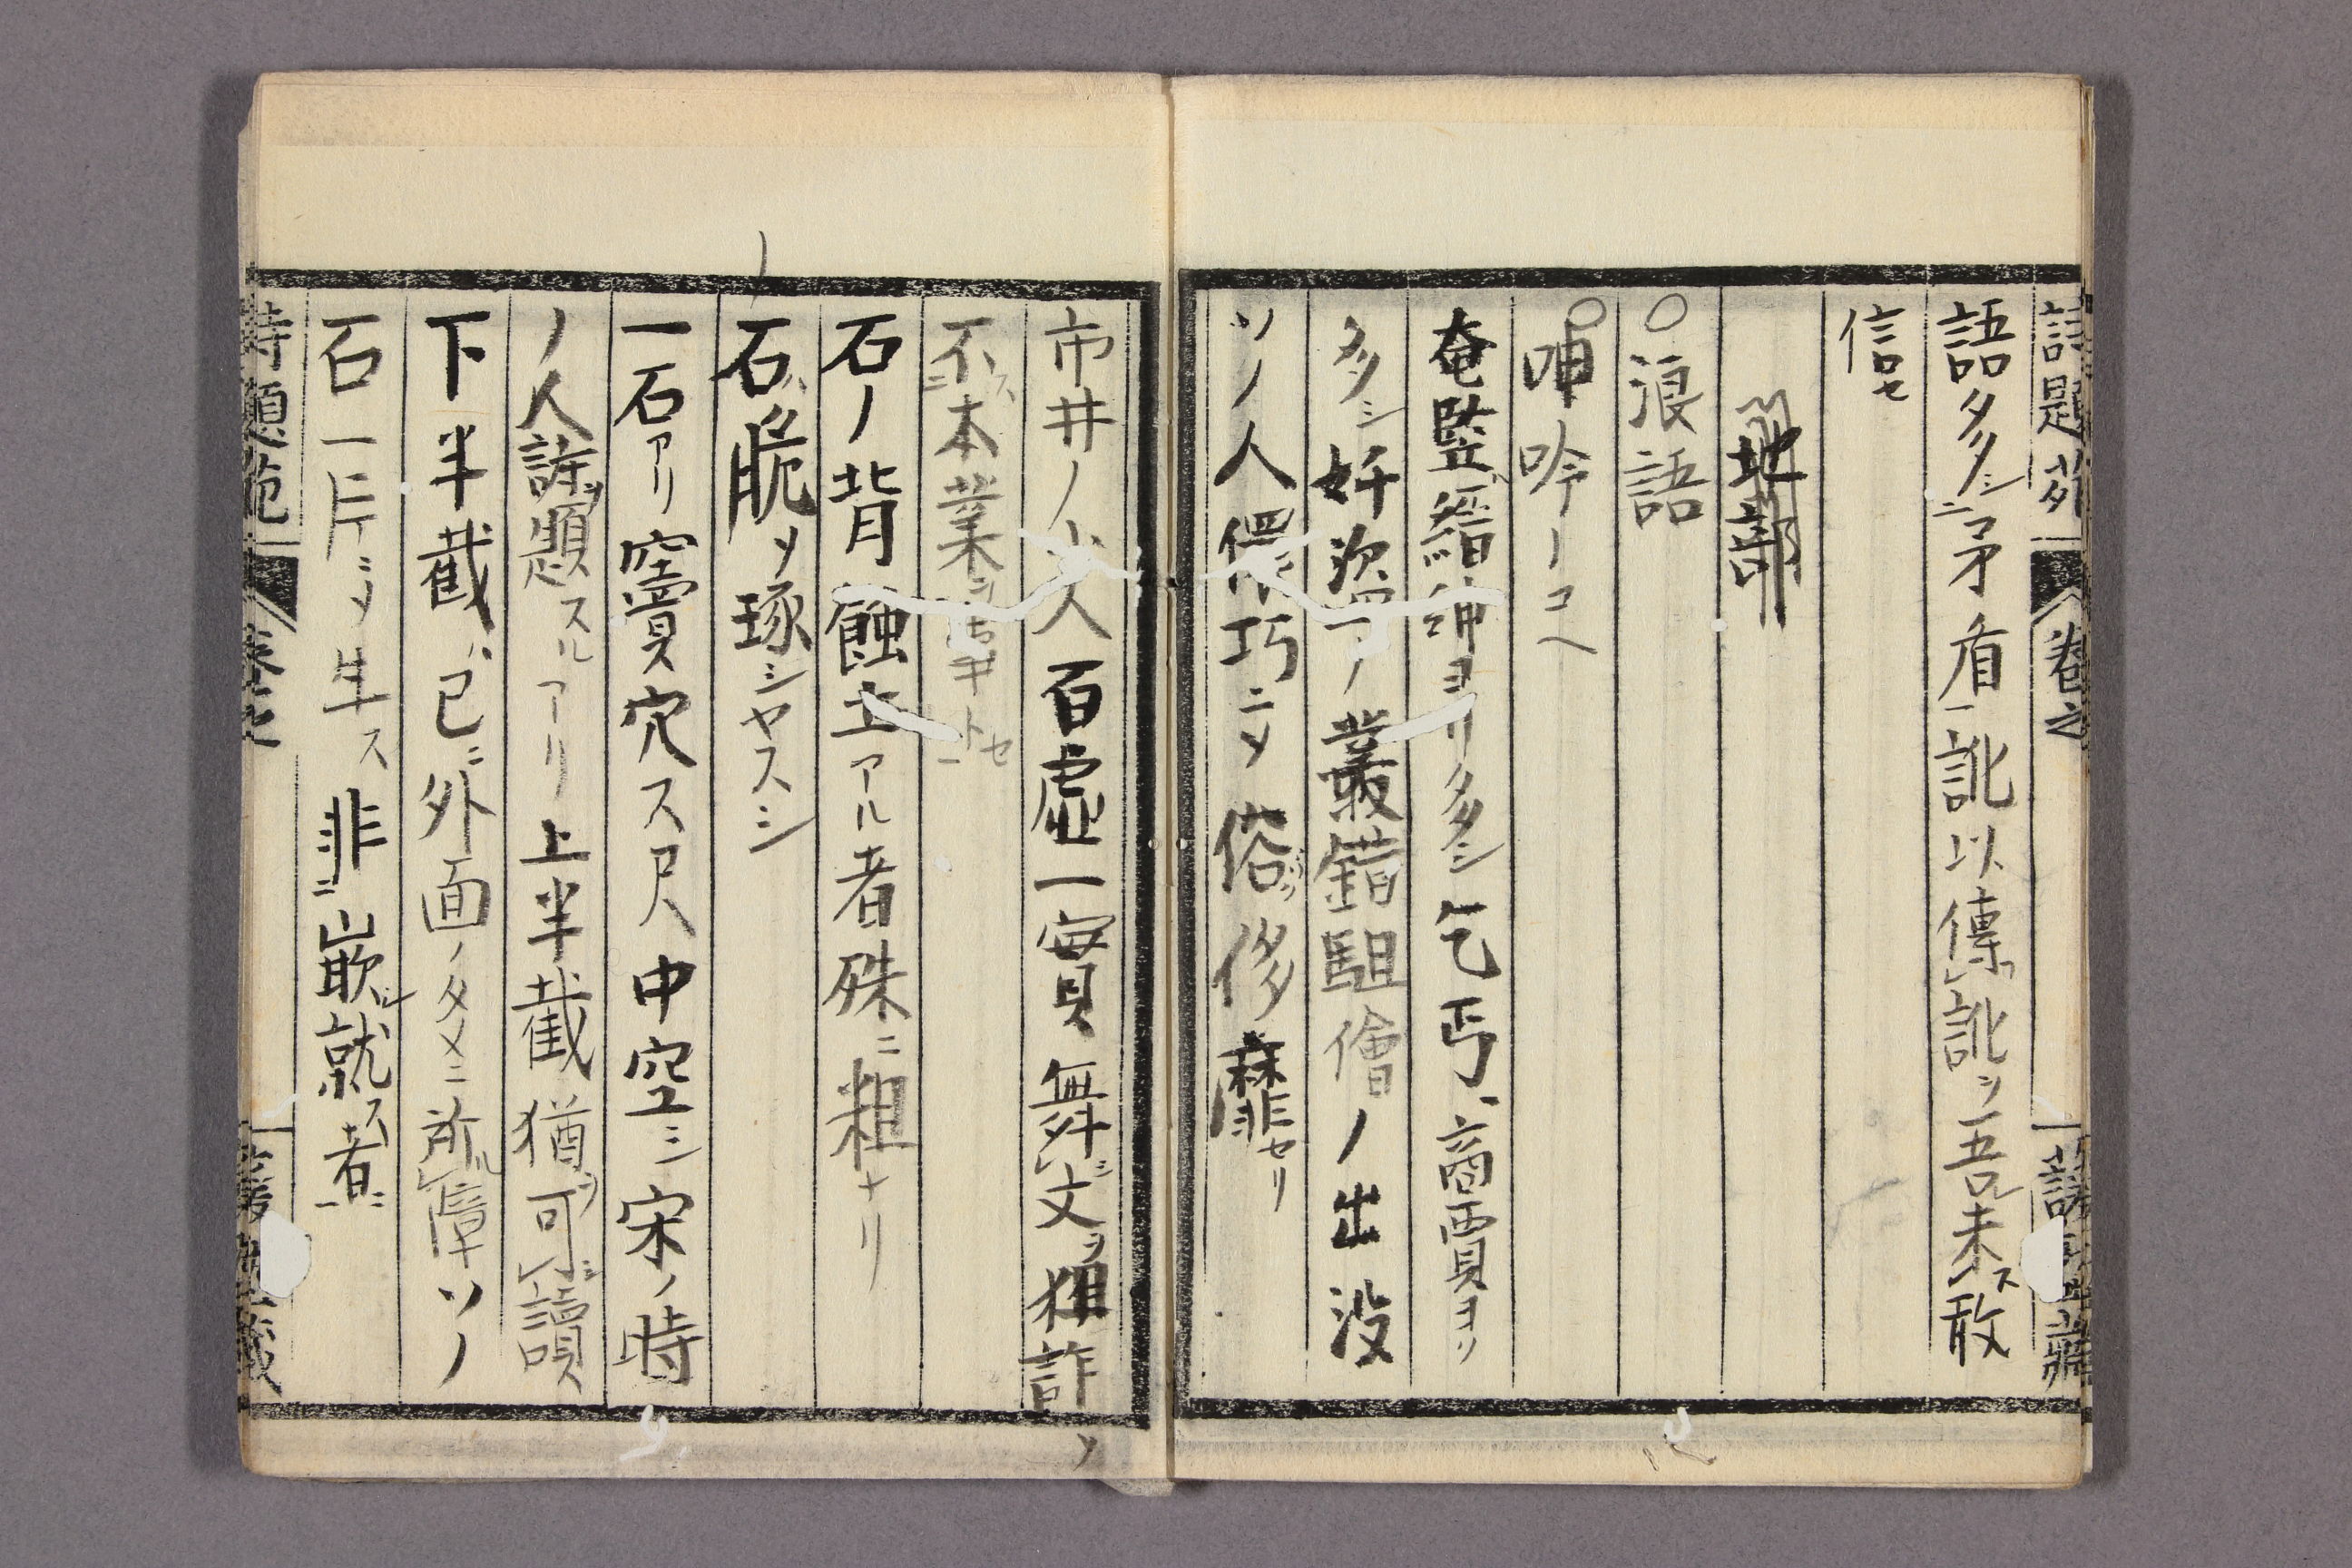 詩題苑 卷之
語多シ矛盾訛以傳訛ヲ吾未ス敢
信セ
地部
○浪語
○呻吟ノコヘ
奄監縉紳ヨリ多シ乞丐商賈ヨソ
多シ奸盗ノ叢錯駔儈ノ出没
ソノ人儇巧ニメ俗侈靡セリ
市井ノ小人百虚一實無舞文ヲ狙詐ソ
不本業ヲ
石ノ背蝕土アル者殊ニ粗ナリ
石ハ脆ソ琢シヤスシ
一石アリ竇穴ス尺中空シ宋ノ時
ノ人詩題スルアリ上半截猶可讀
下半截已ニ外面ノタメニ所障ソノ
石一片ニソ生ス非嵌就ス者ニ
詩題苑